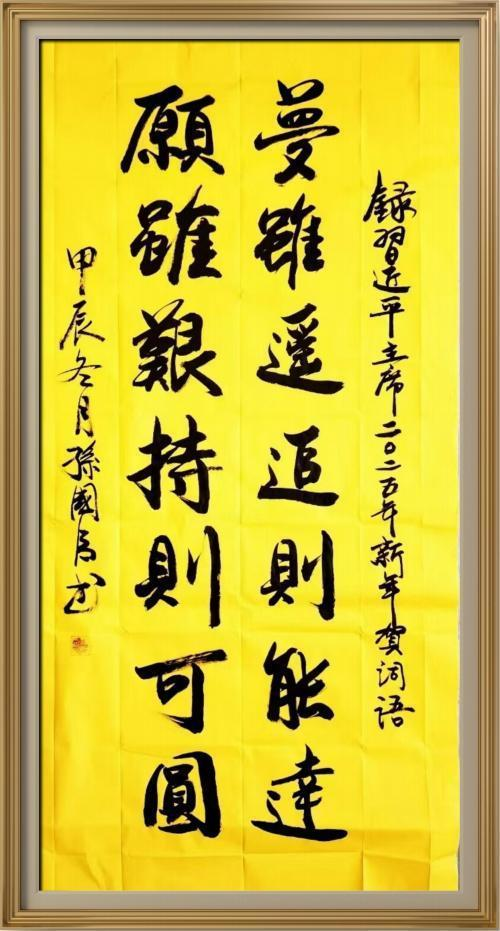 錄習近平主席二〇二五年新年賀詞語
夢雖遥追則能達
願雖艱持則可圓
甲辰冬月孫國良书